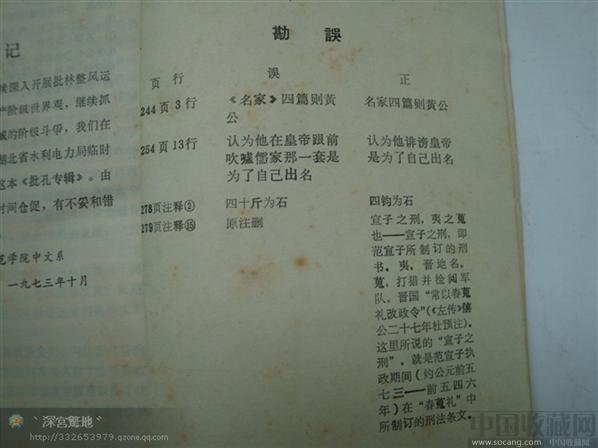 记
续深入开展批林整风运
产阶级世界观，继续抓
域的阶级斗争，我们在
湖北省水利电力局临时
这本《批孔专辑》。由
时间仓促，有不妥和错
范学院中文系
一九七三年十月
勘 误
页 行 误 正
244页3行 《名家》四篇则黄公 名家四篇则黄公
254页13行 认为他在皇帝跟前 认为他诽谤皇帝
吹嘘儒家那一套是 是为了自己出名
为了自己出名
278页注释② 四十斤为石 四钧为石
279页注释⑮ 原注删 宣子之刑，夷之蒐
也——宣子之刑，即
范宣子所制订的刑
书。夷，晋地名。
蒐，打猎并检阅军
队。晋国“常以春蒐
礼改政令”（《左传》僖
公二十七年杜预注）。
这里所说的“宣子之
刑”，就是范宣子执
政期间（约公元前五
七三——前五四六
年）在“春蒐礼”中
所制订的刑法条文。
深宫冤地
http://332653979.qzone.qq.com
中国收藏网
www.socang.com 中国收藏网